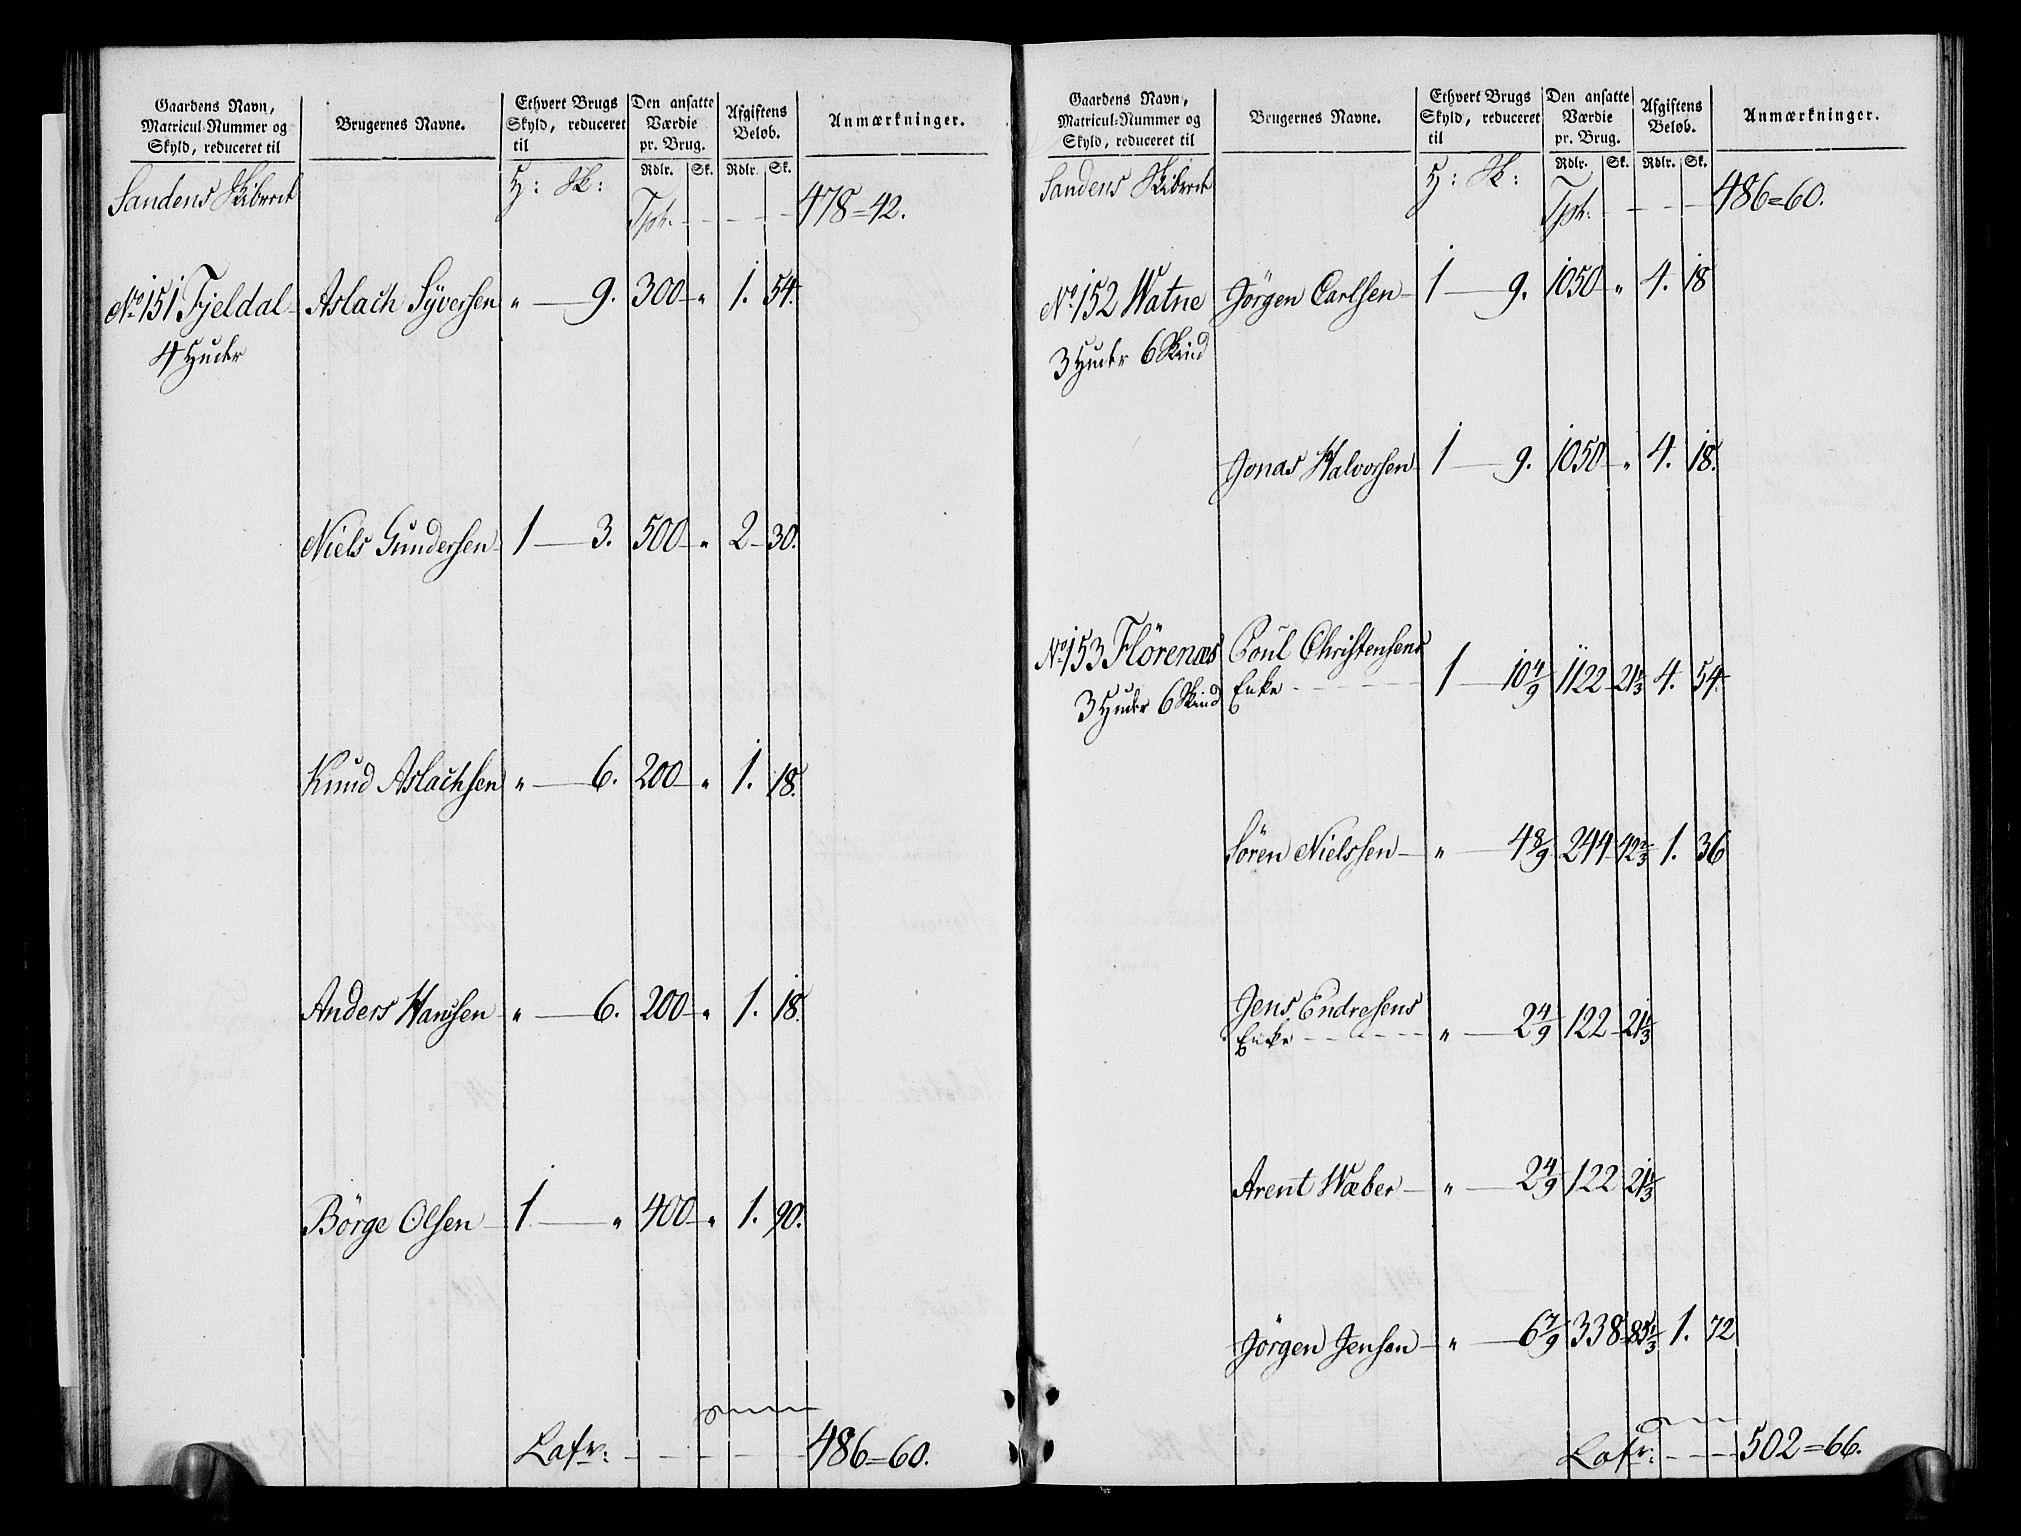 Gaardens Navn,
Matricul-Nummer og
Skyld, reduceret til
Brugernes Navne.
Ethvert Brugs
Skyld, reduceret
til
Den ansatte
Værdie
pr. Brug.
Rdlr. Sk.
Afgiftens
Beløb.
Rdlr. Sk.
Anmærkninger.
Sandens Skibrede
H: Sk:
Tpt. - - - - 478=42.
No 151 Fjeldal Aslach Syversen " — 9. 300 " 1. 54.
4 Huder
Niels Gundersen 1 — 3. 500 " 2 30.
Knud Aslachsen " — 6. 200 " 1. 18.
Anders Hansen " — 6. 200 " 1. 18.
Börge Olsen 1 — " 400 " 1. 90.
Latr: - - - - 486=60.
Gaardens Navn,
Matricul-Nummer og
Skyld, reduceret til
Brugernes Navne.
Ethvert Brugs
Skyld, reduceret
til
Den ansatte
Værdie
pr. Brug.
Rdlr. Sk.
Afgiftens
Beløb.
Rdlr. Sk.
Anmærkninger.
Sandens Skibrede
H: Sk:
Tpt. - - - - 486=60.
No 152 Watne Jörgen Carlsen 1 — 9. 1050 " 4. 18
3 Huder 6 Skind
Jonas Halvorsen 1 — 9. 1050 " 4. 18.
No 153 Flörenæs Poul Christensens
3 Huder 6 Skind Enke - - - - 1 — 10 4/9 1122 21 1/3 4. 54.
Sören Nielssen " — 4 8/9 244 42 2/3 1. 36
Jens Endresens
Enke - - - - " — 2 4/9 122 21 1/3
Arent Wæber " — 2 4/9 122 21 1/3
Jörgen Jensen " — 6 7/9 338 85 1/3 1. 72
Latr: - - - 502=66.